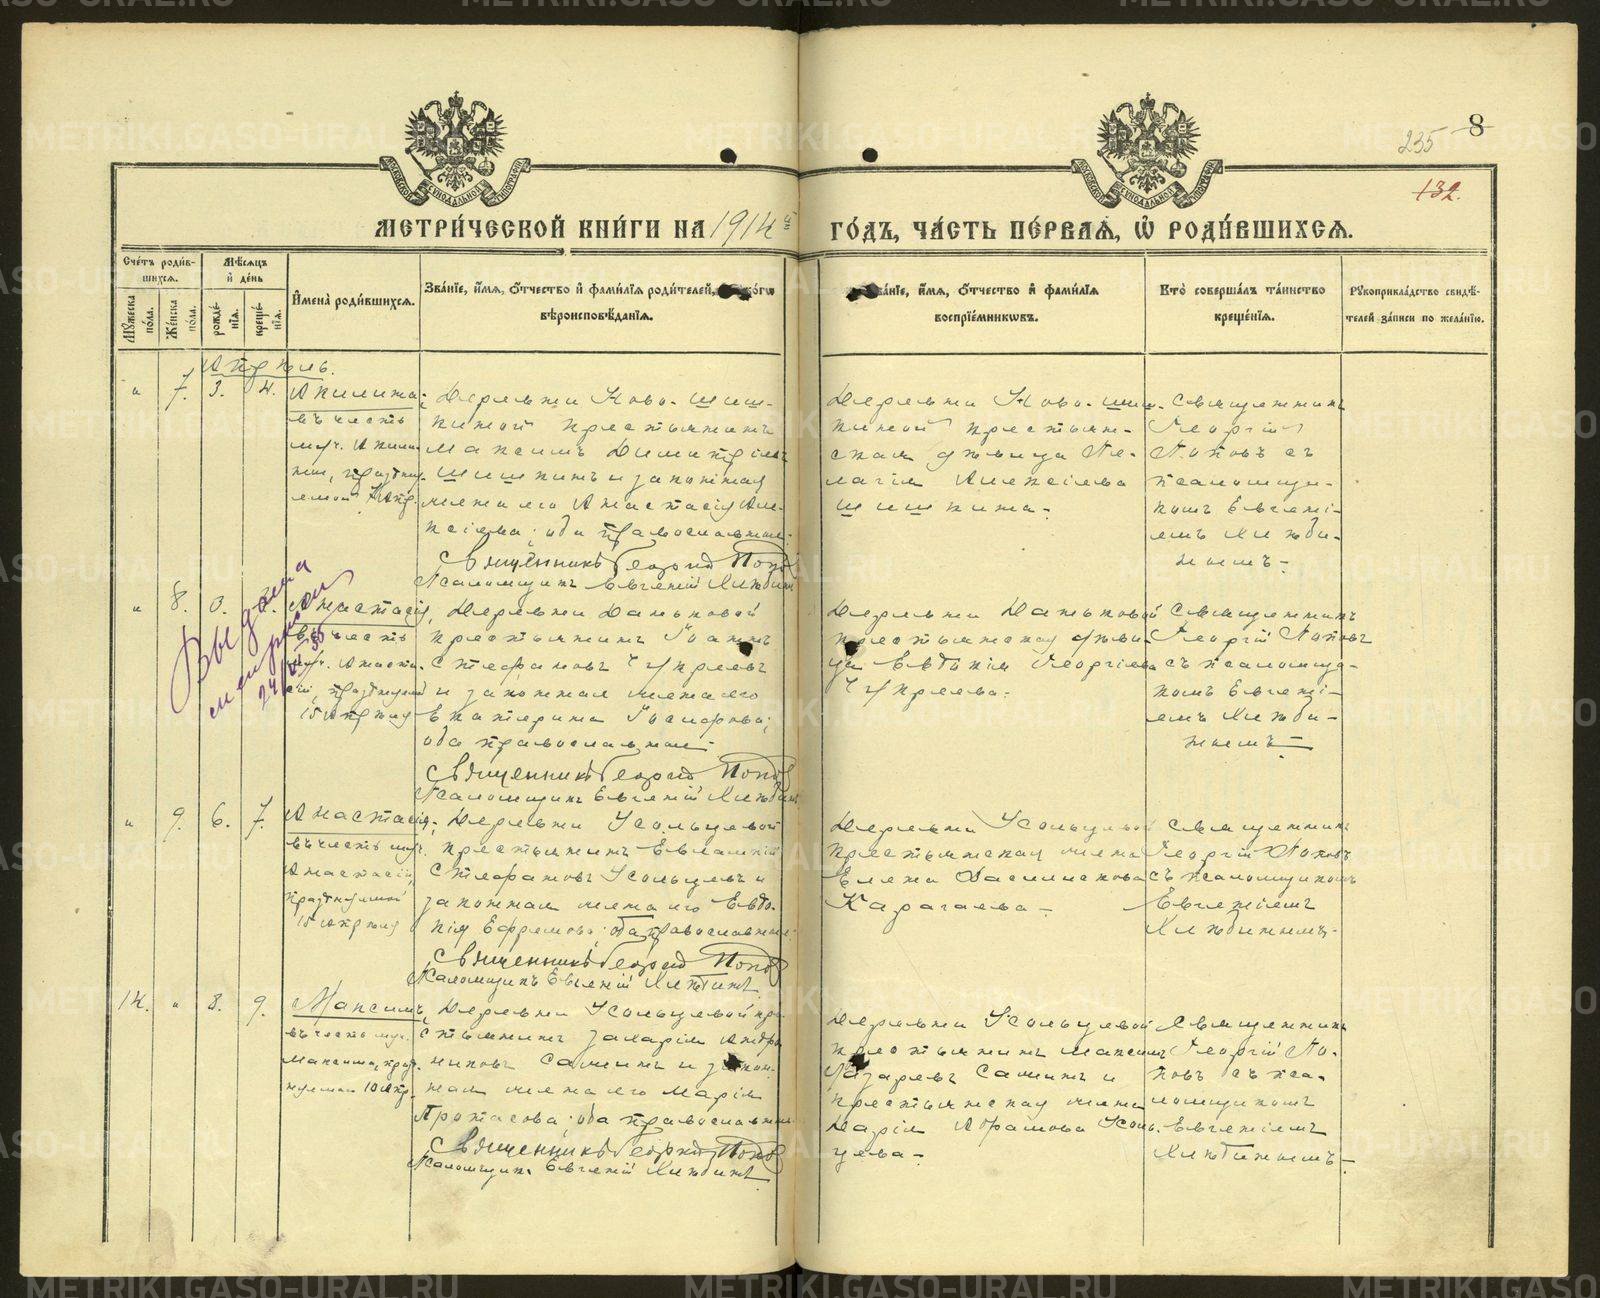 235 8
132.
МЕТРИ́ЧЕСКОЙ КНИ́ГИ НА 1914 й ГО́ДЪ, ЧА́СТЬ ПЕ́РВАѦ, Ѡ҆ РОДИ́ВШИХСѦ.
Сче́тъ роди́вшихсѧ.
Мꙋ́жеска по́ла.
Же́нска по́ла.
Мѣ́сѧцъ и҆ де́нь
рожде́нїѧ.
креще́нїѧ.
И҆мена̀ роди́вшихсѧ.
Зва́нїе, и҆́мѧ, ѻ҆́тчество и҆ фами́лїѧ роди́телей,
вѣроисповѣ́данїѧ.
зва́нїе, и҆́мѧ, ѻ҆́тчество и҆ фами́лїѧ
воспрїе́мникѡвъ.
Кто̀ соверша́лъ та́инство
креще́нїѧ.
Рꙋкоприкла́дство свидѣ́-
телей за́писи по жела́нїю.
Апрѣль.
" 7. 3. 4.
въ честь
Деревни Ново-Шиш-
киной крестьянинъ
Максимъ Димитріевъ
Шишкинъ и законная
жена его Анастасія Але-
ксіева; оба православные.
Священникъ Георгій Поповъ
Псаломщикъ Евгеній Хлѣбинъ
Деревни Ново-Шиш-
киной крестьян-
ская дѣвица Пе-
лагія Алексіева
Шишкина.
Священникъ
Георгій
Поповъ съ
псаломщи-
комъ Евгені-
емъ Хлѣби-
нымъ.
Выдана
" 8.
Анастасія,
въ честь
муч. Анаста-
сіи, празднуемой
15 Апрѣля
Деревни
крестьянинъ Іоаннъ
Стефановъ Чупреевъ
и законная жена его
Екатерина Іосифова;
оба православные.
Священникъ Георгій Поповъ
Псаломщикъ Евгеній Хлѣбинъ
Деревни
крестьянская дѣви-
ца Евдокія Георгіева
Чупреева.
Священникъ
Георгій Поповъ
съ псаломщи-
комъ Евгені-
емъ Хлѣби-
нымъ
" 9. 6. 7.
Анастасія,
въ честь муч.
Анастасіи,
празднуемой
15 Апрѣля
Деревни Усольцевой
крестьянинъ Евлампій
Стефановъ Усольцевъ и
законная жена его Евдо-
кія Ефремова; оба православные.
Священникъ Георгій Поповъ
Псаломщикъ Евгеній Хлѣбинъ
Деревни Усольцевой
крестьянская жена
Елена Василискова
Карагаева
Священникъ
Георгій Поповъ
съ псаломщикомъ
Евгеніемъ
Хлѣбинымъ.
14. " 8. 9.
Максимъ,
въ честь муч.
Максима, праз-
10 Апр.
Деревни Усольцевой кре-
стьянинъ Захарія Андро-
никовъ Саминъ и закон-
ная жена его Марія
Протасова; оба православные.
Священникъ Георгій Поповъ
Псаломщикъ Евгеній Хлѣбинъ
Деревни Усольцевой
крестьянинъ Максимъ
Лазаревъ Саминъ и
крестьянская жена
Марія Абрамова Усоль-
цева
Священникъ
Георгій По-
повъ съ пса-
ломщикомъ
Евгеніемъ
Хлѣбинымъ.
METRIKI.GASO-URAL.RU